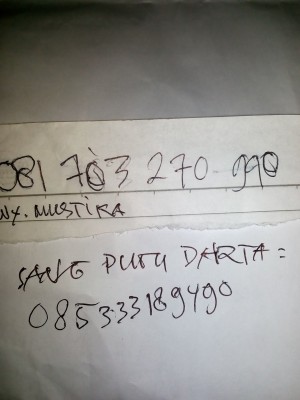 081 703 270 990
NY. MUSTIKA
SANG PUTU DARTA =
085333189490